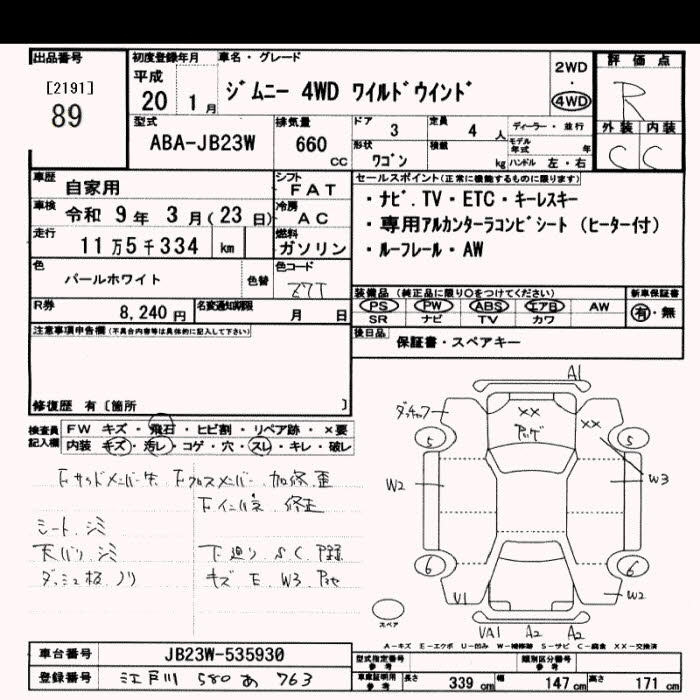 出品番号
[2191]
89
初度登録年月
平成
20 1月
車名・グレード
ジムニー 4WD ワイルドウインド
2WD
・
4WD
評価点
R
外装 内装
C C
型式
ABA-JB23W
排気量
660
cc
ドア 3
定員 4 人
形状 ワゴン
積載 kg
ディーラー・並行
モデル年式 年
ハンドル 左・右
車歴 自家用
車検 令和 9年 3月(23日)
走行 11万5千334 km
シフト FAT
冷房 AC
燃料 ガソリン
色 パールホワイト
色替
色コード Z7T
R券 8,240円
名変通知期限 月 日
セールスポイント(正常に機能するものに限ります)
・ナビ.TV・ETC・キーレスキー
・専用アルカンターラコンビシート (ヒーター付)
・ルーフレール・AW
装備品(純正品に限り○をつけてください)
PS PW ABS エアB AW
SR ナビ TV カワ
新車保証書
有・無
後日品 保証書・スペアキー
注意事項申告欄(不具合内容等は具体的に記入して下さい)
修復歴 有〔箇所 〕
検査員記入欄
FW キズ・飛石・ヒビ割・リペア跡・×要
内装 キズ・汚レ・コゲ・穴・スレ・キレ・破レ
シート、シミ
天バリ シミ
下廻り S C
キズ E W3
A1
××
××
5 5
W2
W3
6 6
V1
W2
VA1 A2 A2
スペア
A-キズ E-エクボ U-凹み W-補修跡 S-サビ C-腐食 XX-交換済
車台番号 JB23W-535930
登録番号 江戸川 580 あ 763
型式指定番号 参考
類別区分番号 参考
車庫証明用 参考
長さ 339 cm
幅 147 cm
高さ 171 cm